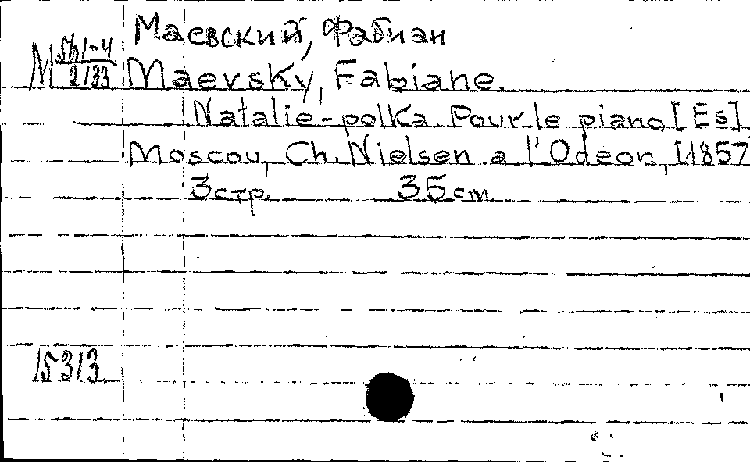 Маевский, Фабиан
M
2133
Maevsky, Fabiane.
Natalie-polka. Pour le piano [Es]
Moscou, Ch. Nielsen a l'Odeon, [1857
3 стр. 35 cm
15313